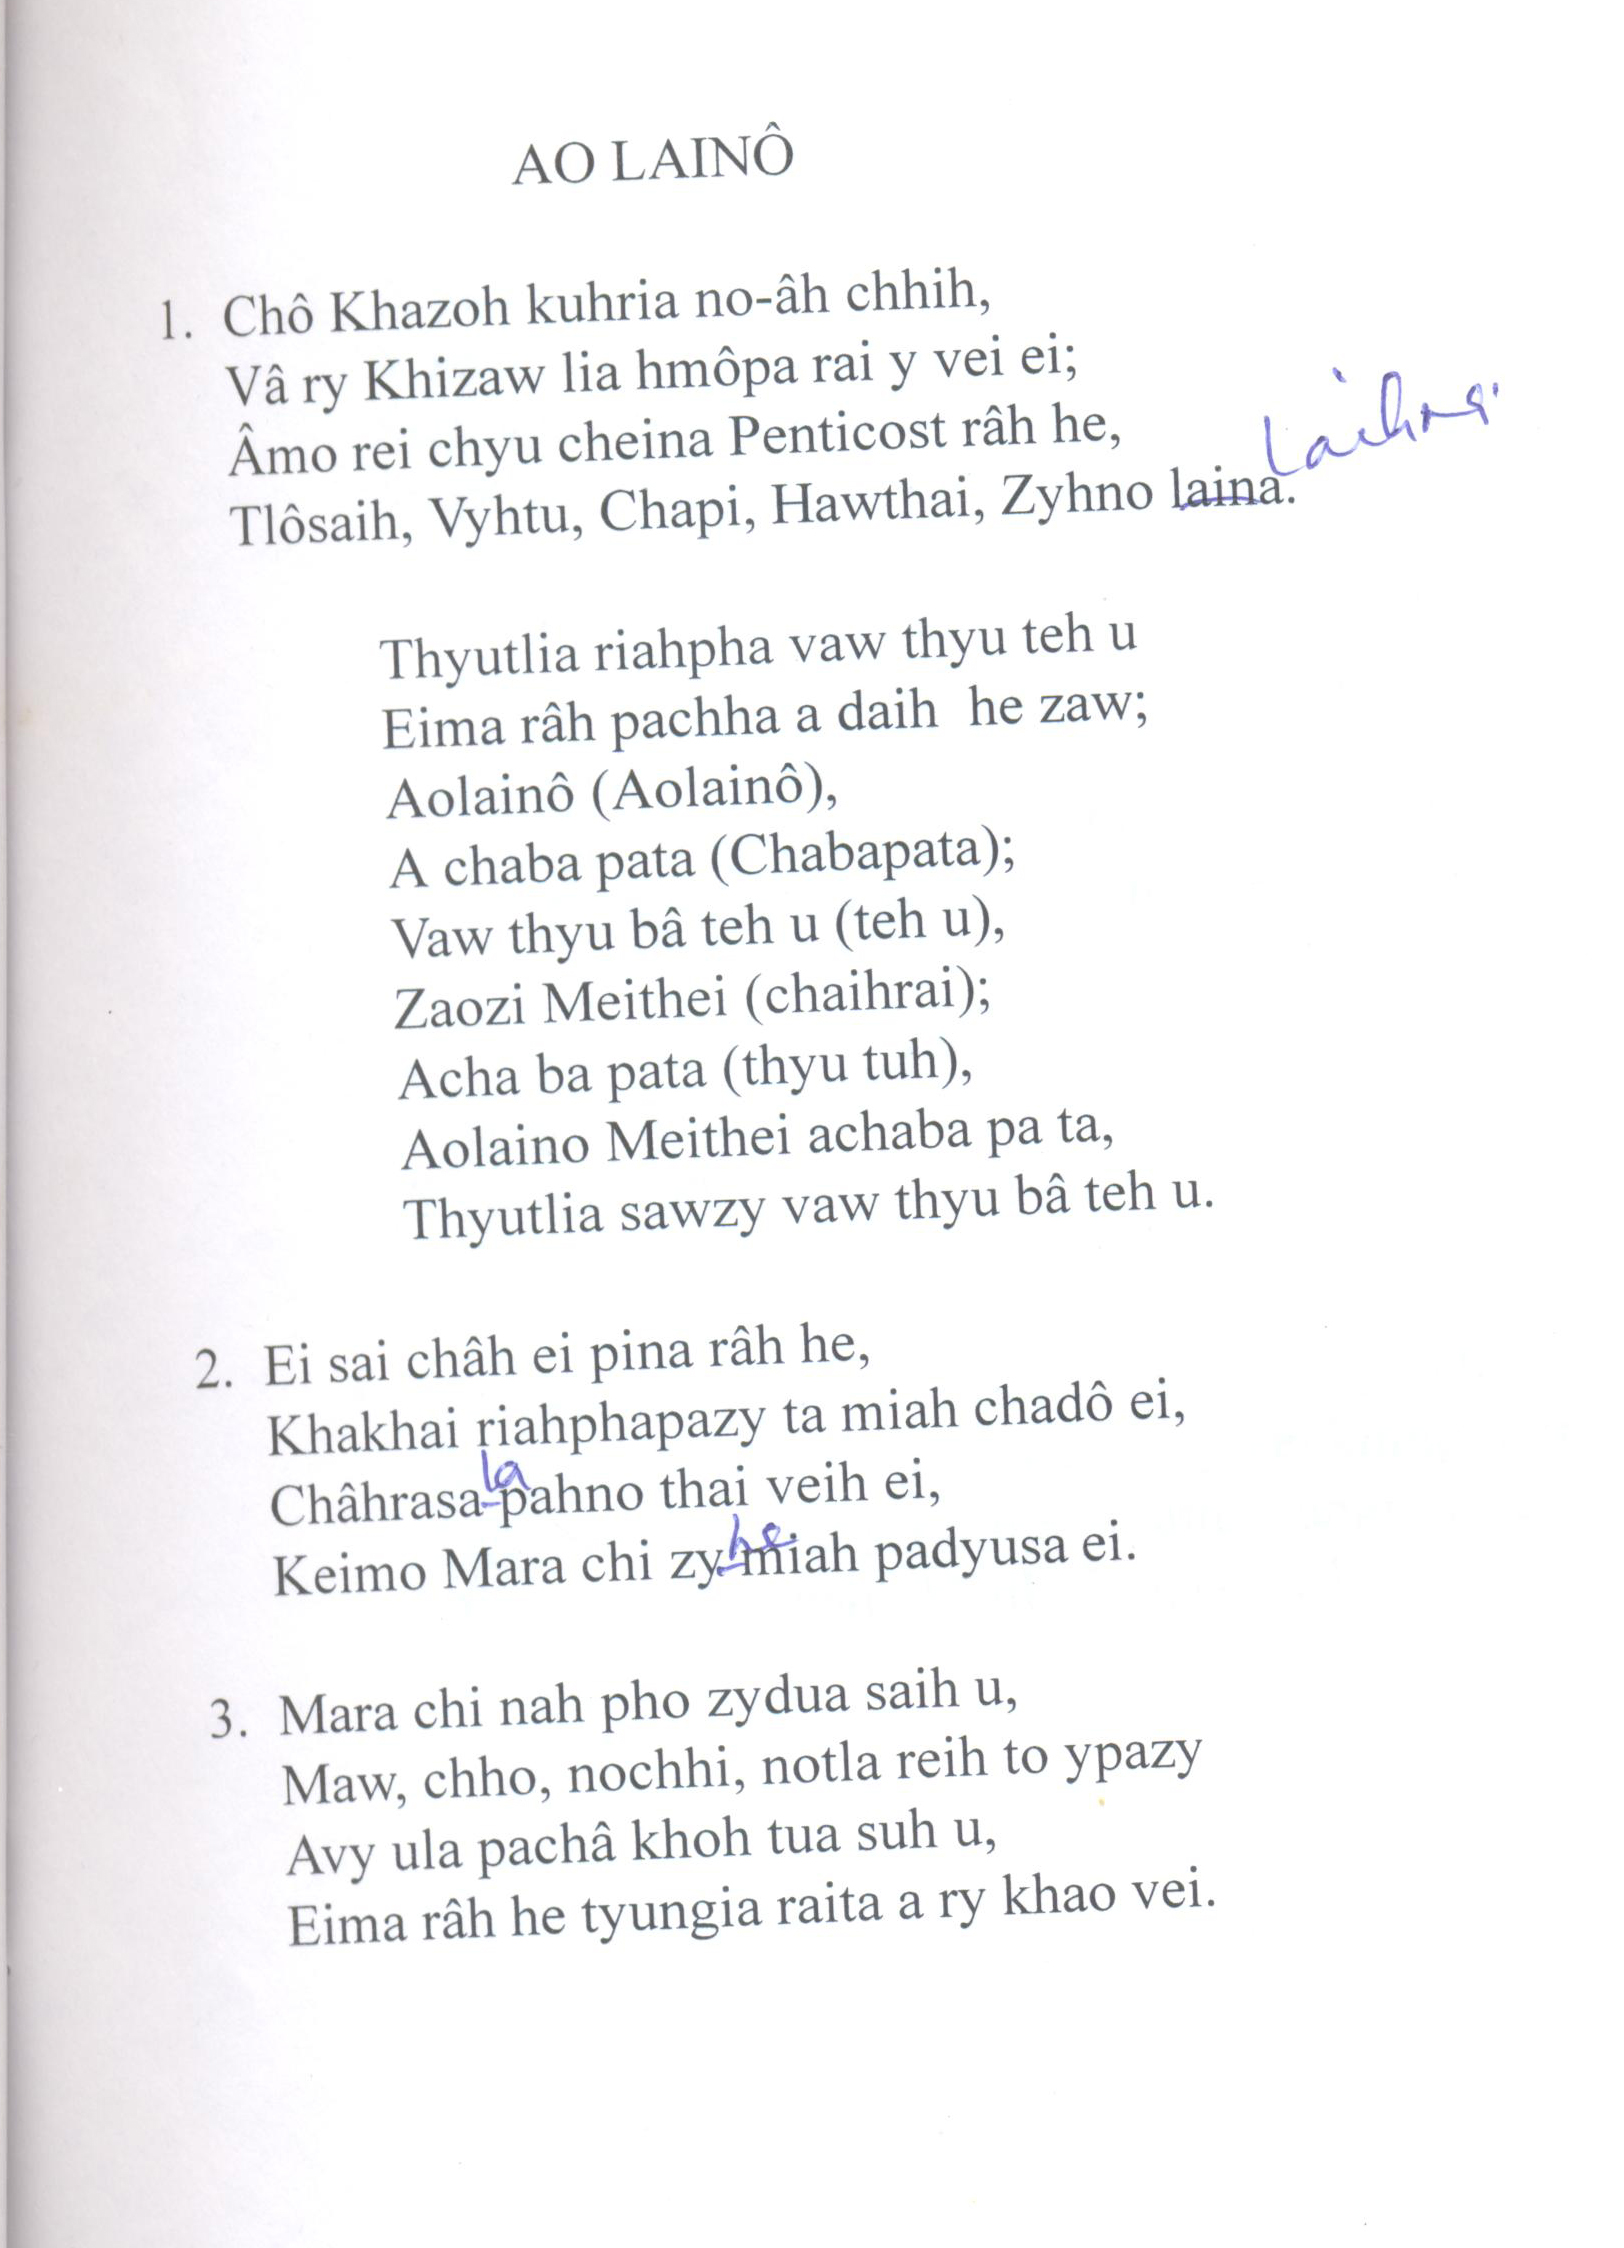 AO LAINÔ
1. Chô Khazoh kuhria no-âh chhih,
Vâ ry Khizaw lia hmôpa rai y vei ei;
Âmo rei chyu cheina Penticost râh he,
Tlôsaih, Vyhtu, Chapi, Hawthai, Zyhno laina.
Thyutlia riahpha vaw thyu teh u
Eima râh pachha a daih he zaw;
Aolainô (Aolainô),
A chaba pata (Chabapata);
Vaw thyu bâ teh u (teh u),
Zaozi Meithei (chaihrai);
Acha ba pata (thyu tuh),
Aolaino Meithei achaba pa ta,
Thyutlia sawzy vaw thyu bâ teh u.
2. Ei sai châh ei pina râh he,
Khakhai riahphapazy ta miah chadô ei,
la
Châhrasa-pahno thai veih ei,
he
Keimo Mara chi zy miah padyusa ei.
3. Mara chi nah pho zydua saih u,
Maw, chho, nochhi, notla reih to ypazy
Avy ula pachâ khoh tua suh u,
Eima râh he tyungia raita a ry khao vei.